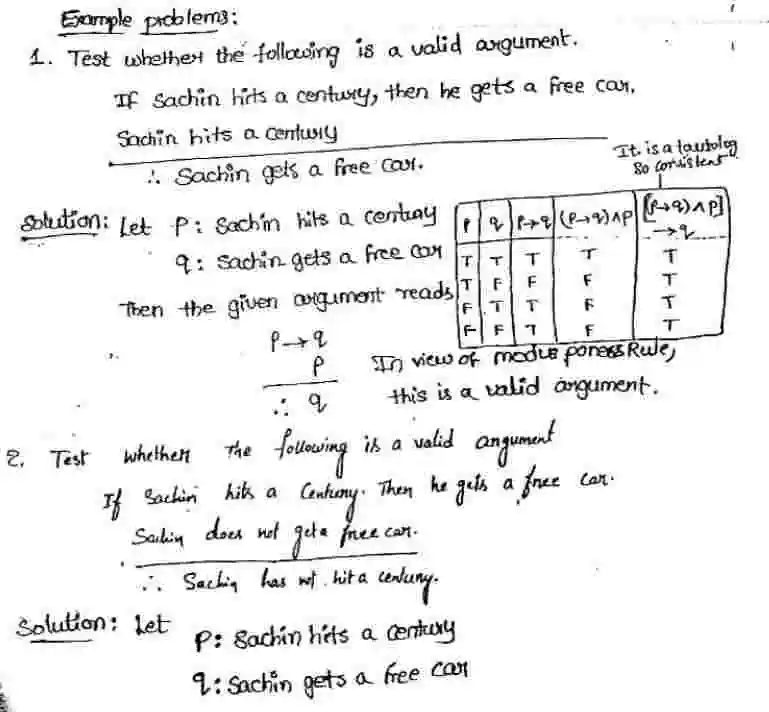 Example problems:
1. Test whether the following is a valid argument.
If Sachin hits a century, then he gets a free car.
Sachin hits a century
∴ Sachin gets a free car.
It is a tautolog
So consistent
Solution: Let P: Sachin hits a century
q: Sachin gets a free car
Then the given argument reads
P→q
P
∴ q
P q P→q (P→q)∧P [(P→q)∧P]→q
T T T T T
T F F F T
F T T F T
F F T F T
In view of modus poness Rule,
this is a valid argument.
2. Test whether the following is a valid argument
If Sachin hits a Century. Then he gets a free car.
Sachin does not get a free car.
∴ Sachin has not hit a century.
Solution: Let
P: Sachin hits a century
q: Sachin gets a free car